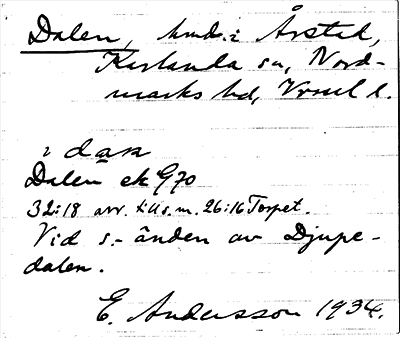 Dalen, hmd. i Årstad,
Karlanda sn, Nord-
marks hd, Vrml l.
i dαꞥ
Dalen ek G 70
32:18 avr. t. ll s. m. 26:16 Torpet.
Vid s.-änden av Djupe-
dalen.
E. Andersson 1934.